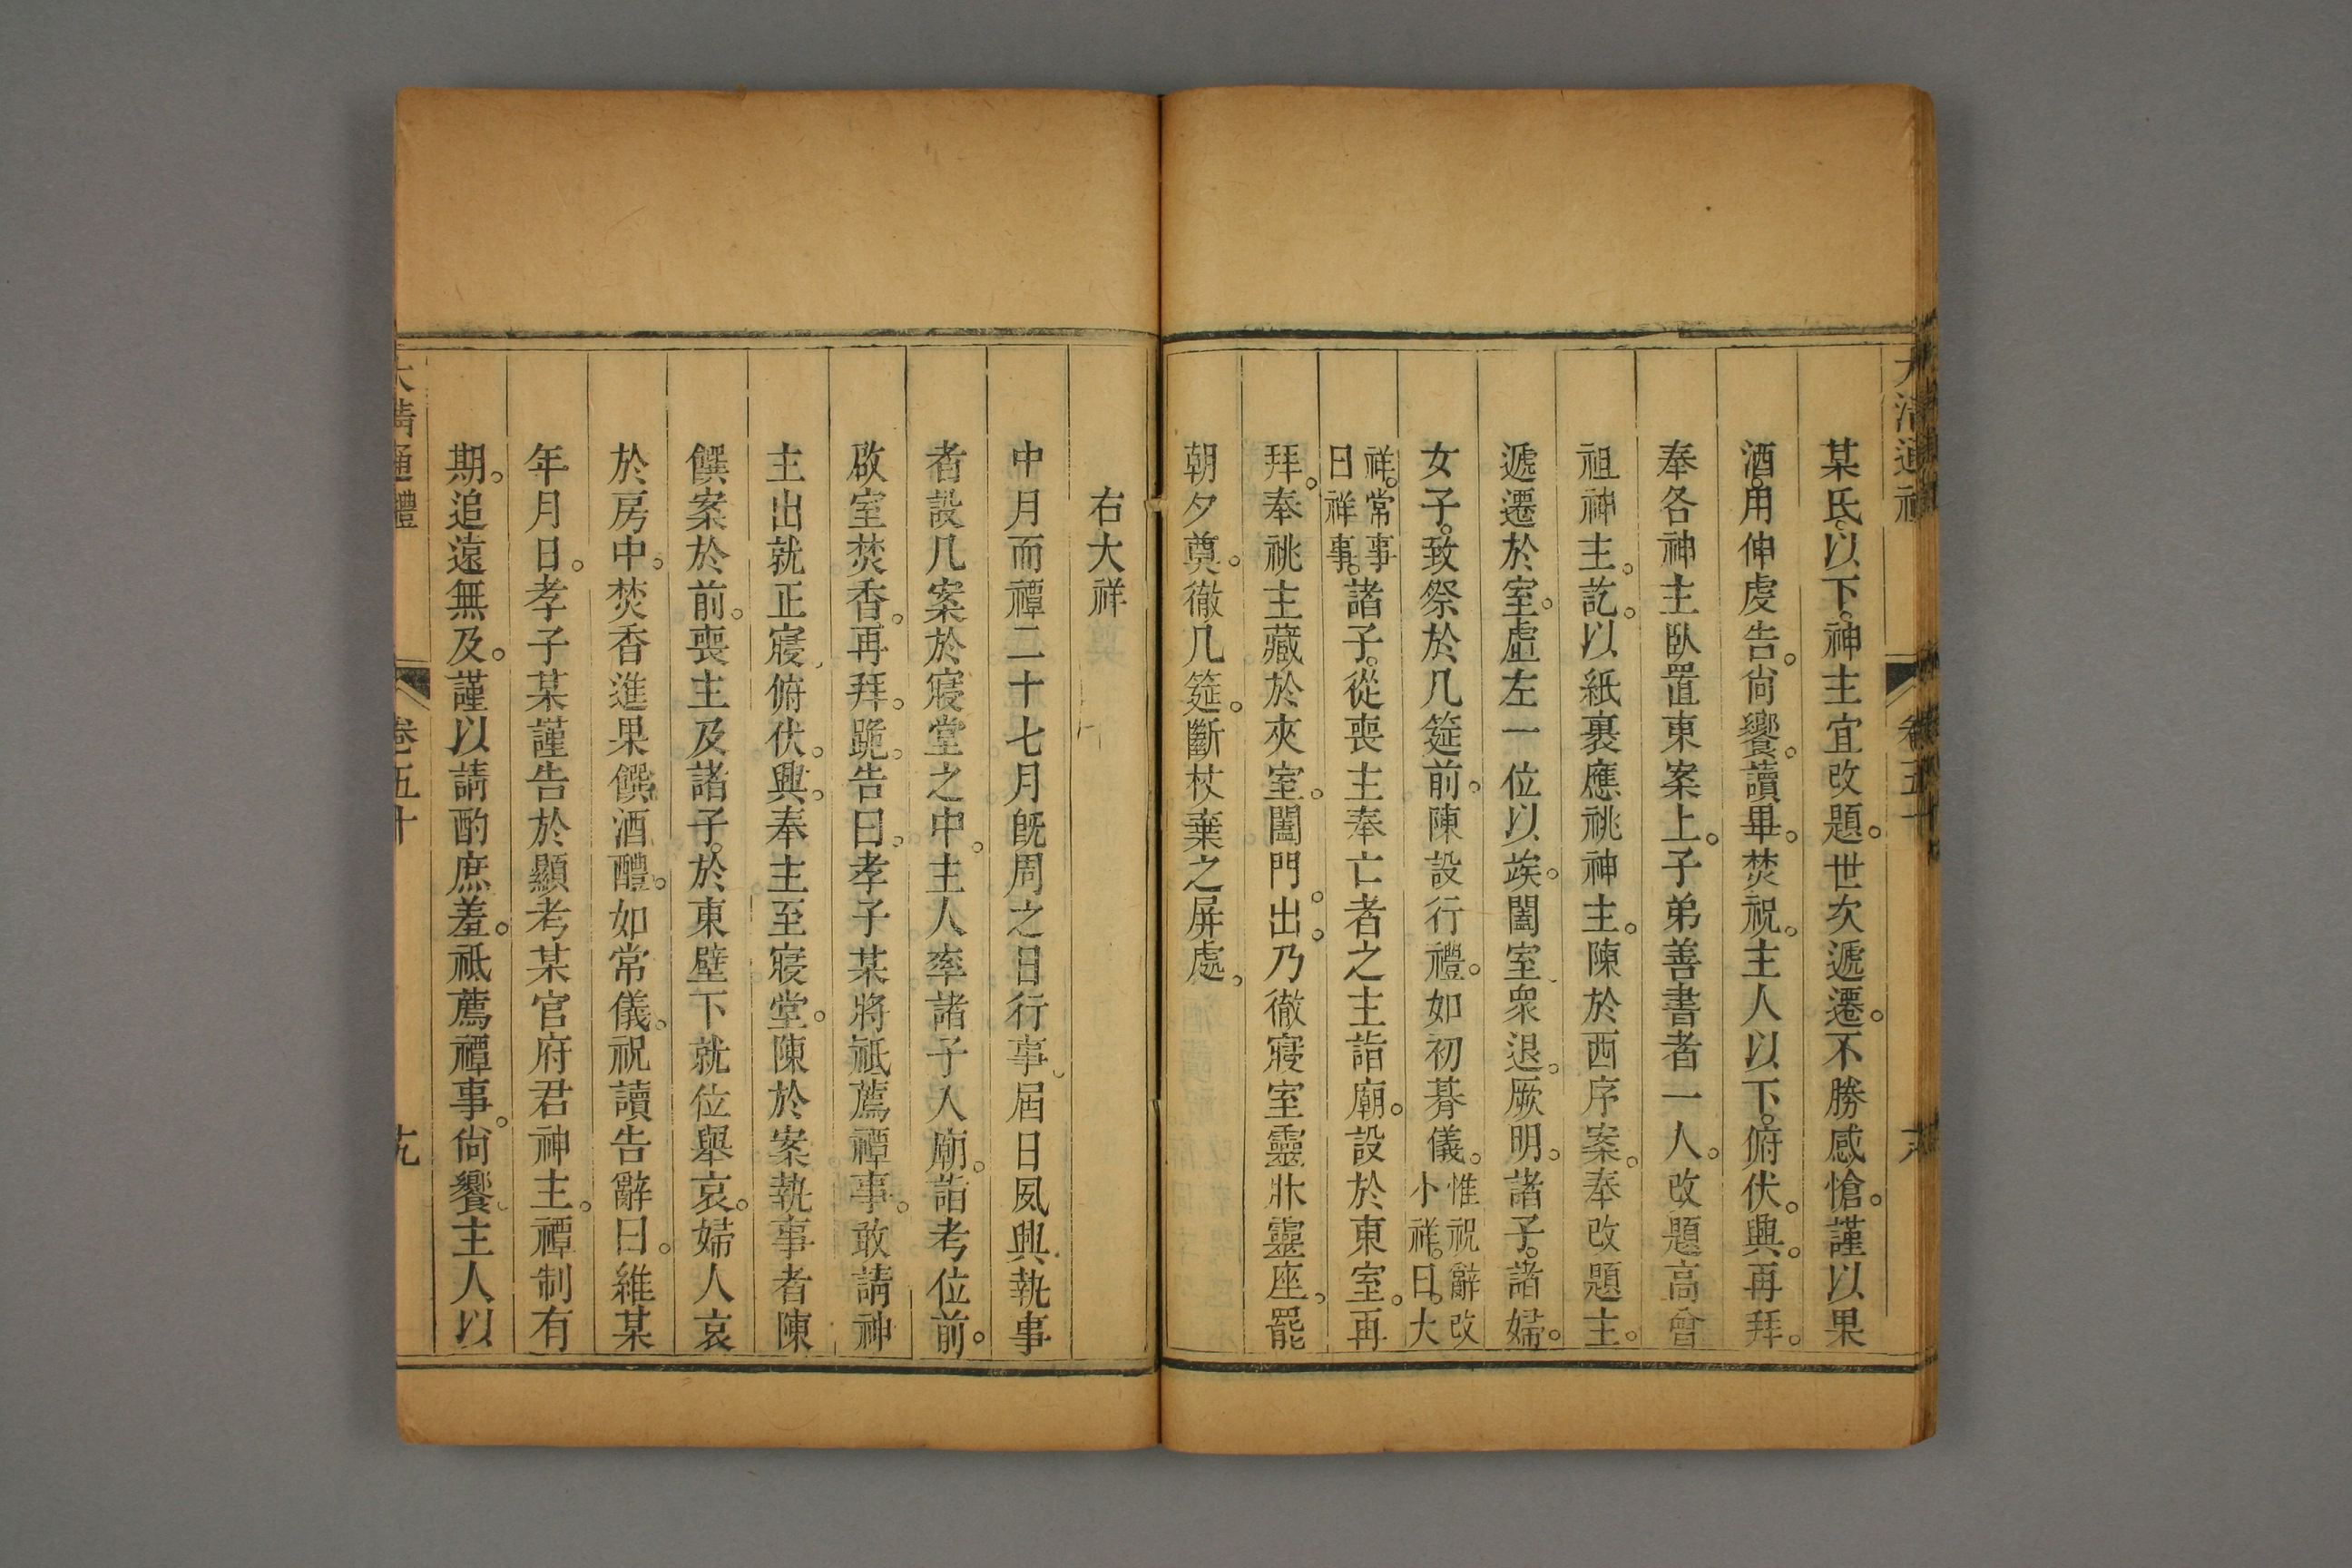 大清通禮 卷五十
某氏以下。神主宜改題。世次遞遷。不勝感愴。謹以果
酒。用伸虔告。尙饗。讀畢。焚祝。主人以下。俯伏。興。再拜。
奉各神主臥置東案上。子弟善書者一人。改題高曾
祖神主。訖。以紙裹應祧神主。陳於西序案。奉改題主。
遞遷於室。虛左一位以竢。闔室。衆退。厥明。諸子。諸婦。
女子。致祭於几筵前。陳設行禮。如初朞儀。惟祝辭改小祥。曰。大
祥。常事曰祥事。諸子。從喪主奉亡者之主詣廟。設於東室。再
拜。奉祧主藏於夾室。闔門。出。乃徹寢室靈牀靈座。罷
朝夕奠。徹几筵。斷杖棄之屏處。
右大祥
中月而禫二十七月旣周之日行事。屆日夙興。執事
者設几案於寢堂之中。主人率諸子入廟。詣考位前。
啟室焚香。再拜。跪。告曰。孝子某將祗薦禫事。敢請神
主出就正寢。俯伏。興。奉主至寢堂。陳於案執事者陳
饌案於前。喪主及諸子。於東壁下就位舉哀。婦人哀
於房中。焚香進果饌酒醴。如常儀。祝讀告辭曰。維某
年月日。孝子某謹告於顯考某官府君神主。禫制有
期。追遠無及。謹以請酌庶羞。祗薦禫事。尙饗。主人以
大清通禮 卷五十